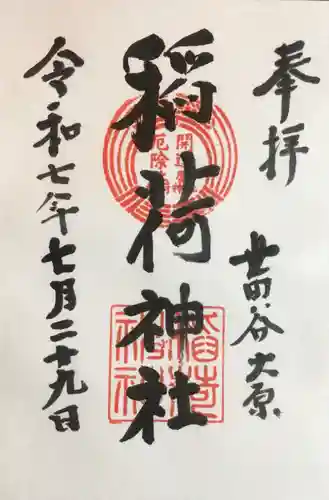 奉拝
世田谷大原
稲荷神社
令和七年七月二十九日
厄除
開運